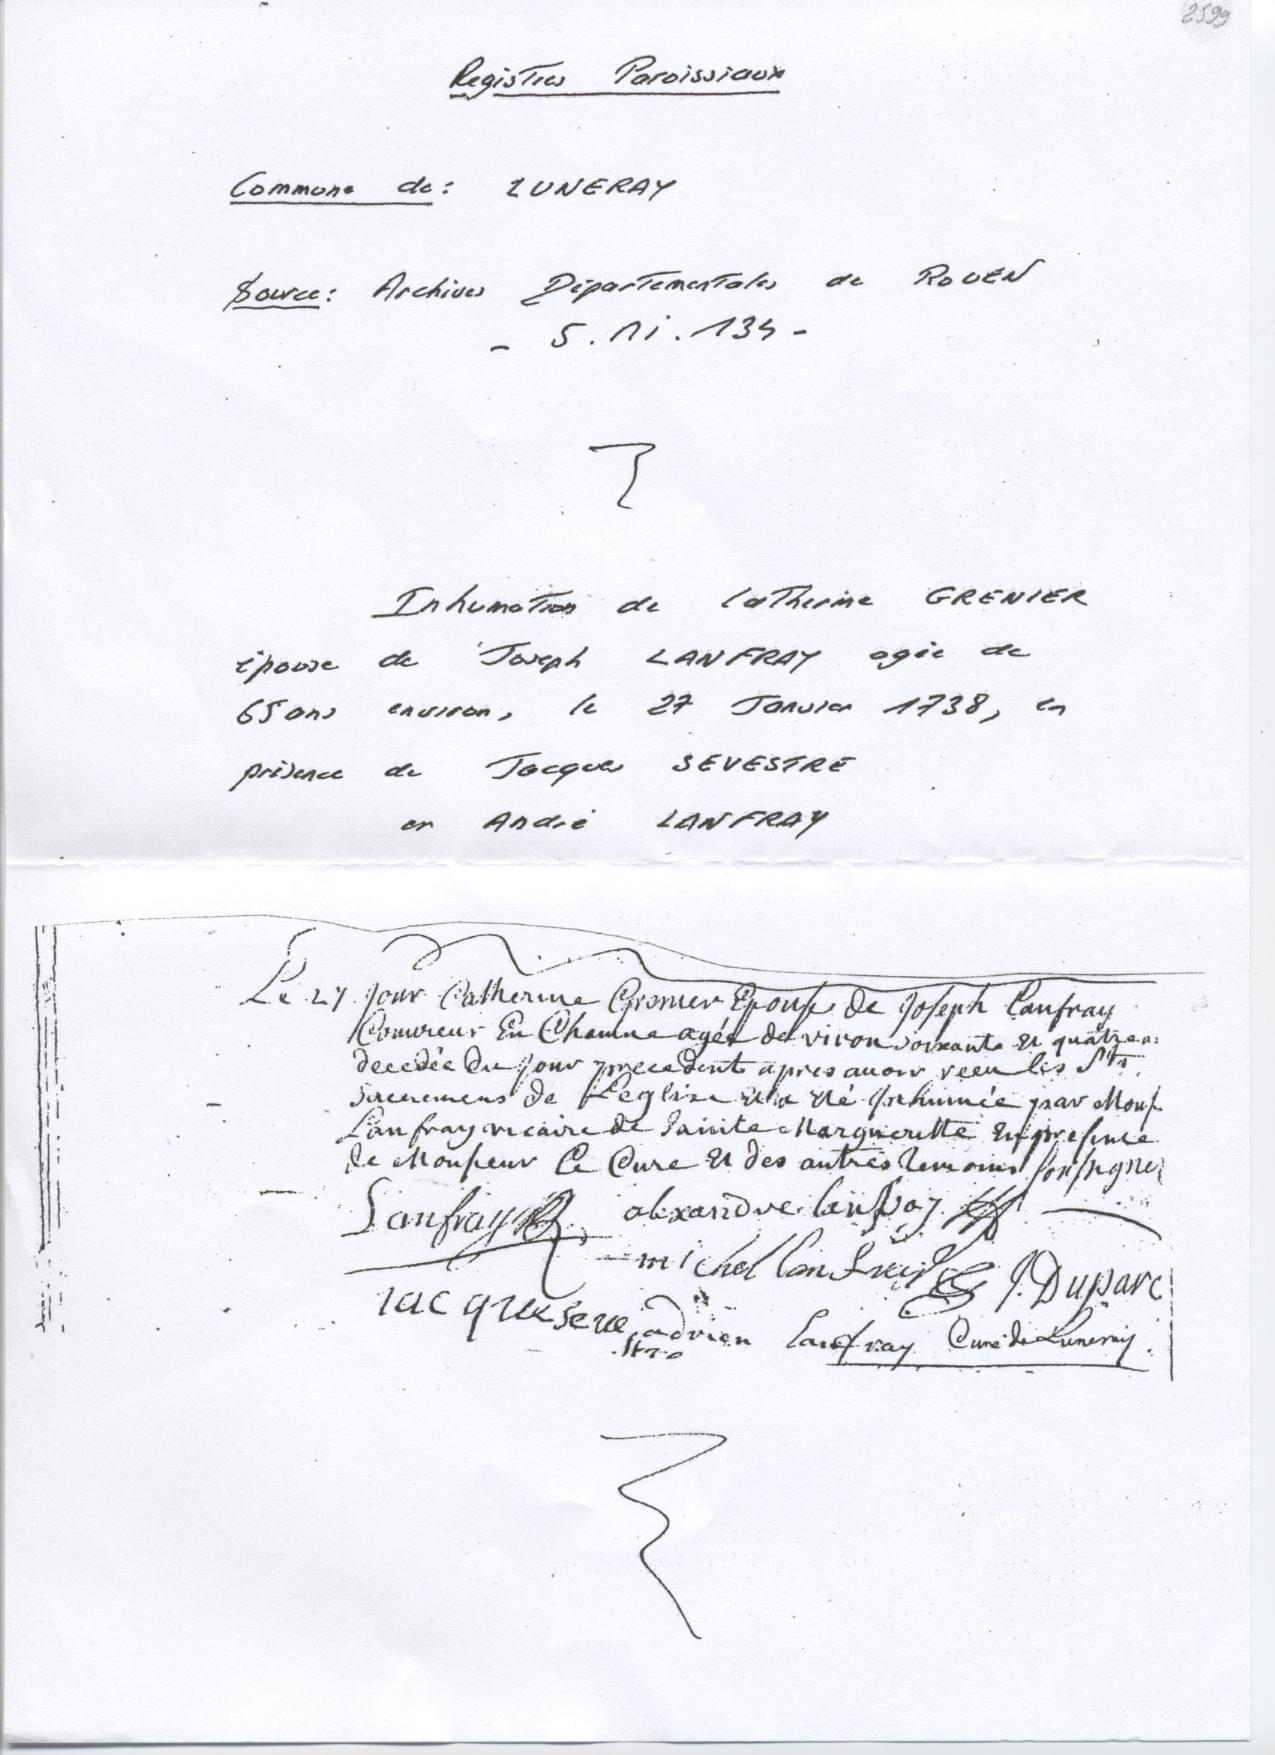 2599
Registres Paroissiaux
Commune de : LUNERAY
Source : Archives Départementales de ROUEN
- 5.Mi.134 -
Inhumation de Catherine GRENIER
épouse de Joseph LANFRAY agée de
65 ans environ, le 27 Janvier 1738, en
présence de Jacques SEVESTRE
et André LANFRAY
Le 27 jour Catherine Grenier Epouse de Joseph Lanfray
Couvreur En Chaume agée de viron soixante et quatre
decedée du jour precedent apres avoir receu les Sts
sacremens de l'eglise et a eté Inhumée par Monsr
Lanfray vicaire de Sainte Margueritte En presence
de Monsieur Le Curé Et des autres temoins soussignez
Lanfray alexandre lanfray
michel lanfray J. Duparc
iacque seve adrien lanfray Curé de Luneray.
stre